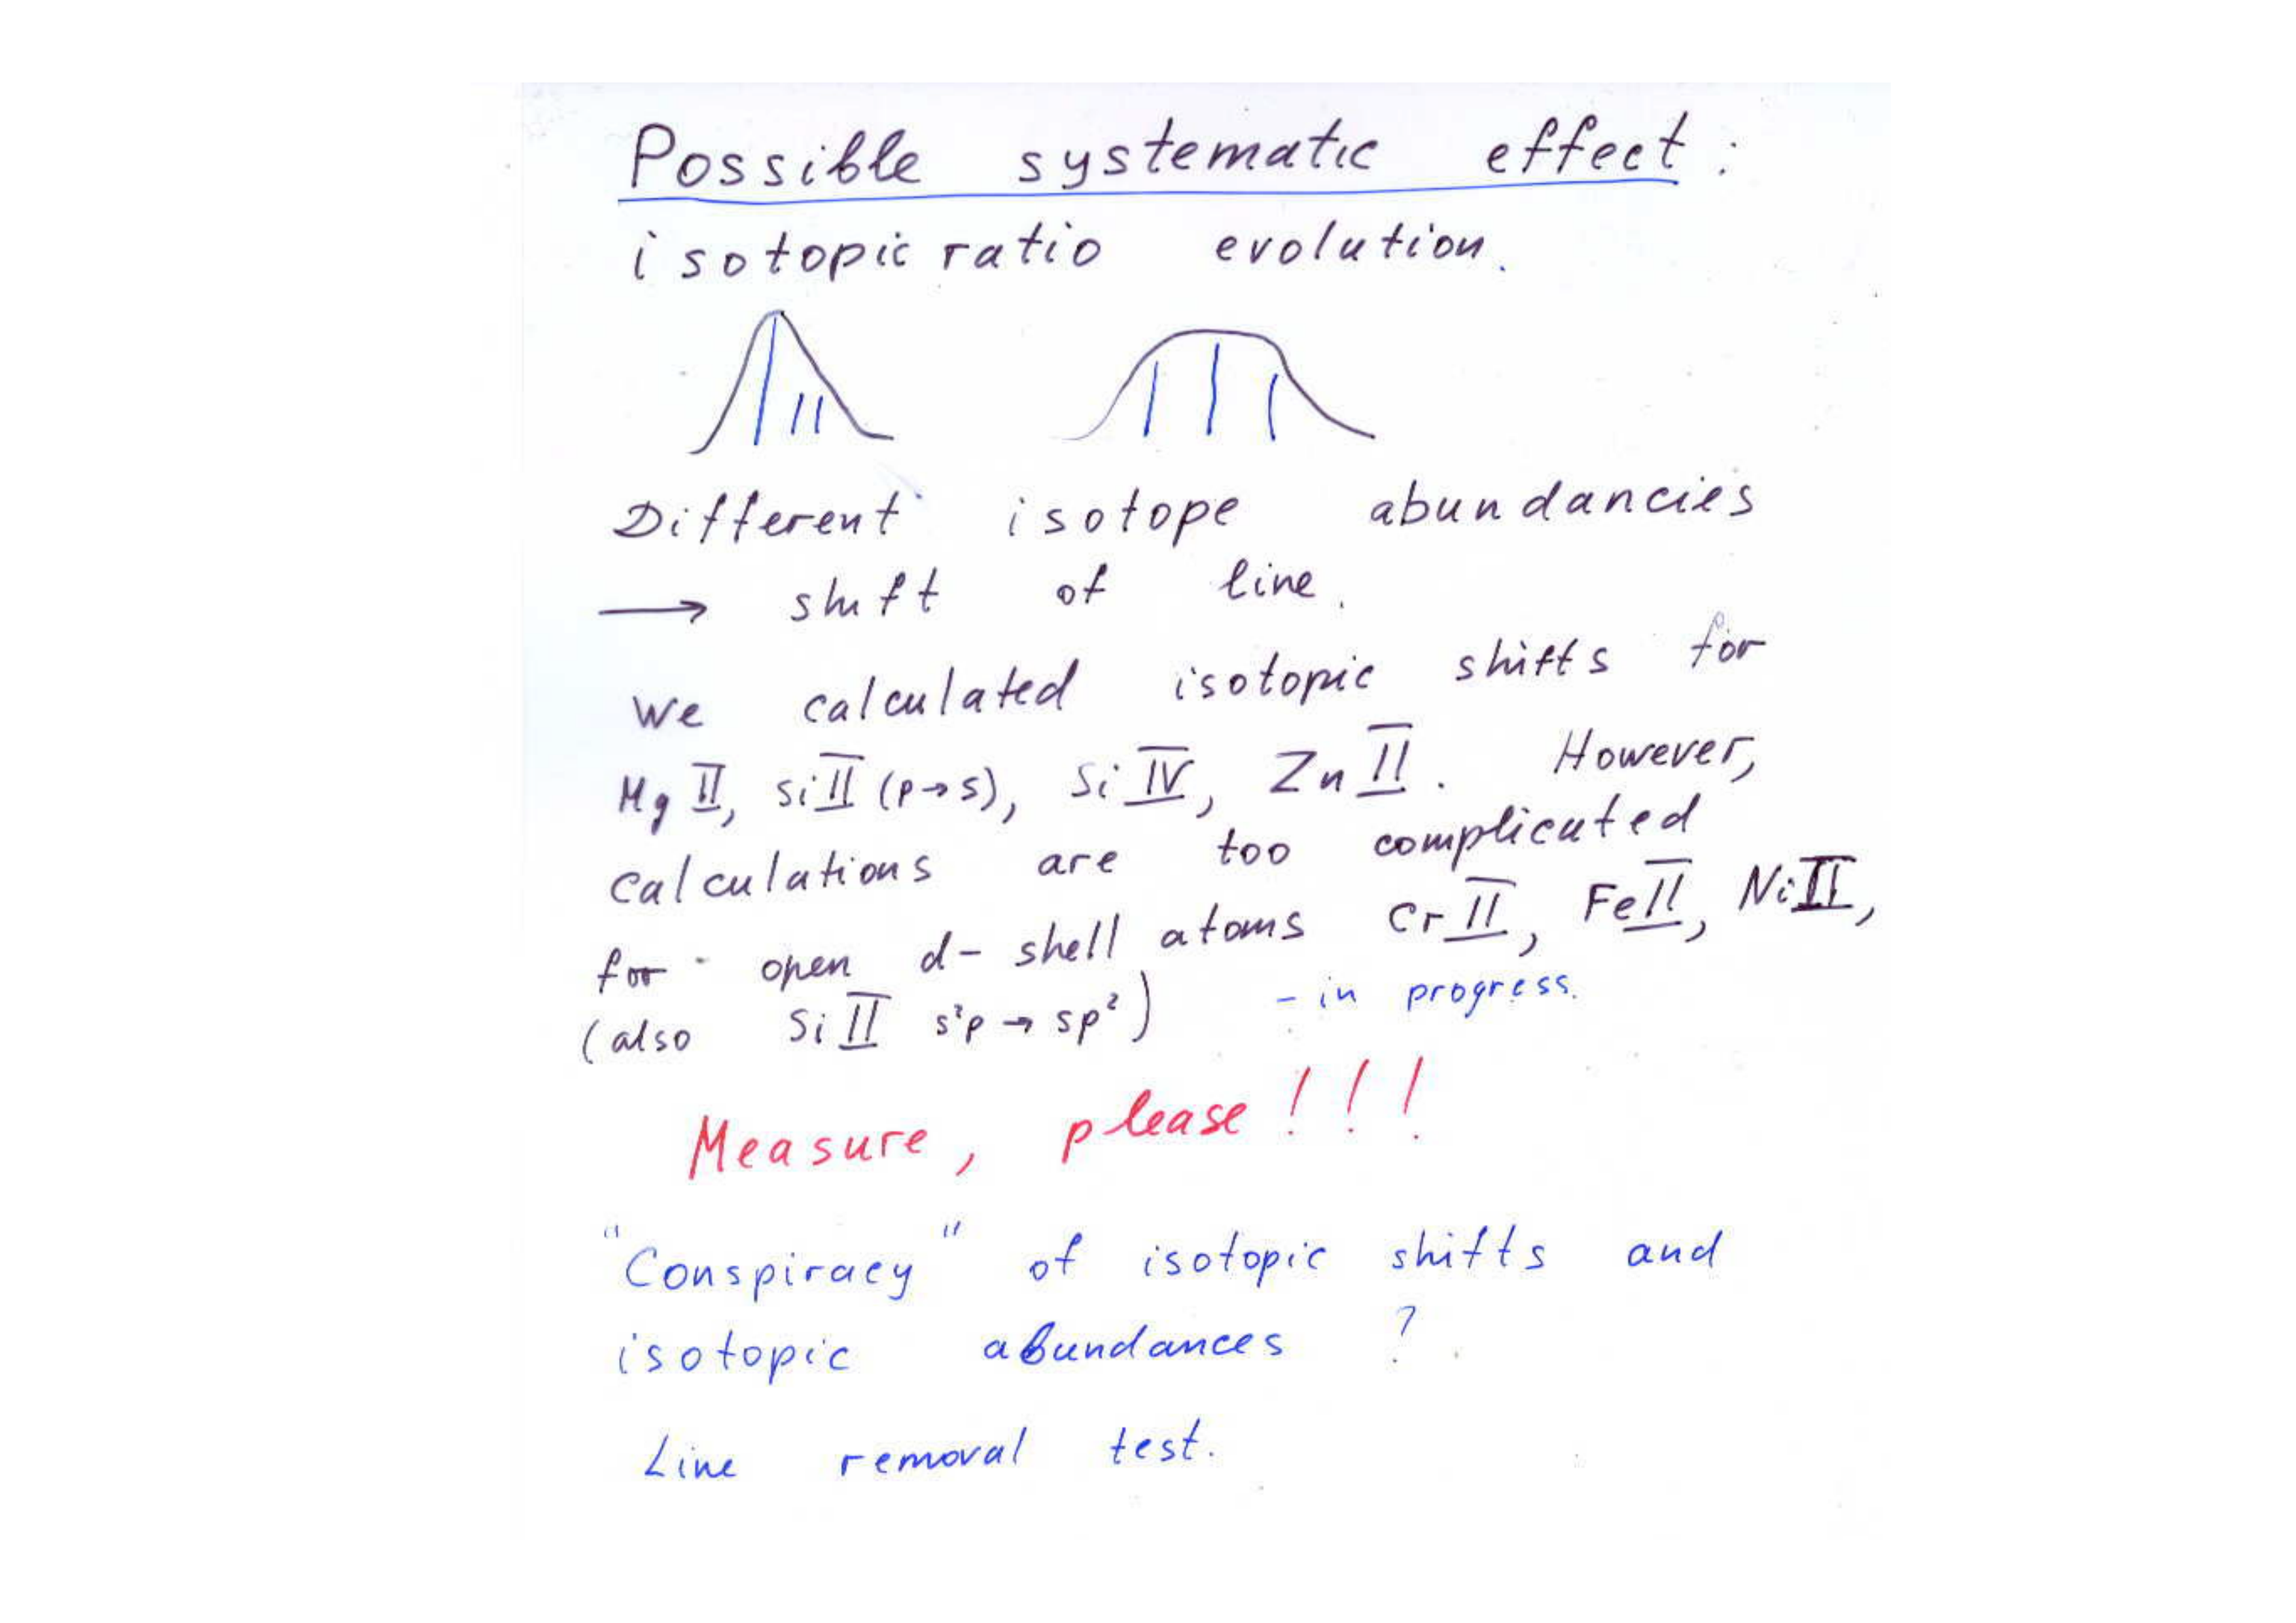 Possible systematic effect:
isotopic ratio evolution.
Different isotope abundancies
→ shift of line.
We calculated isotopic shifts for
Mg II, Si II (p→s), Si IV, Zn II. However,
calculations are too complicated
for open d-shell atoms Cr II, Fe II, Ni II,
(also Si II s²p → sp²) - in progress.
Measure, please!!!
"Conspiracy" of isotopic shifts and
isotopic abundances ?
Line removal test.